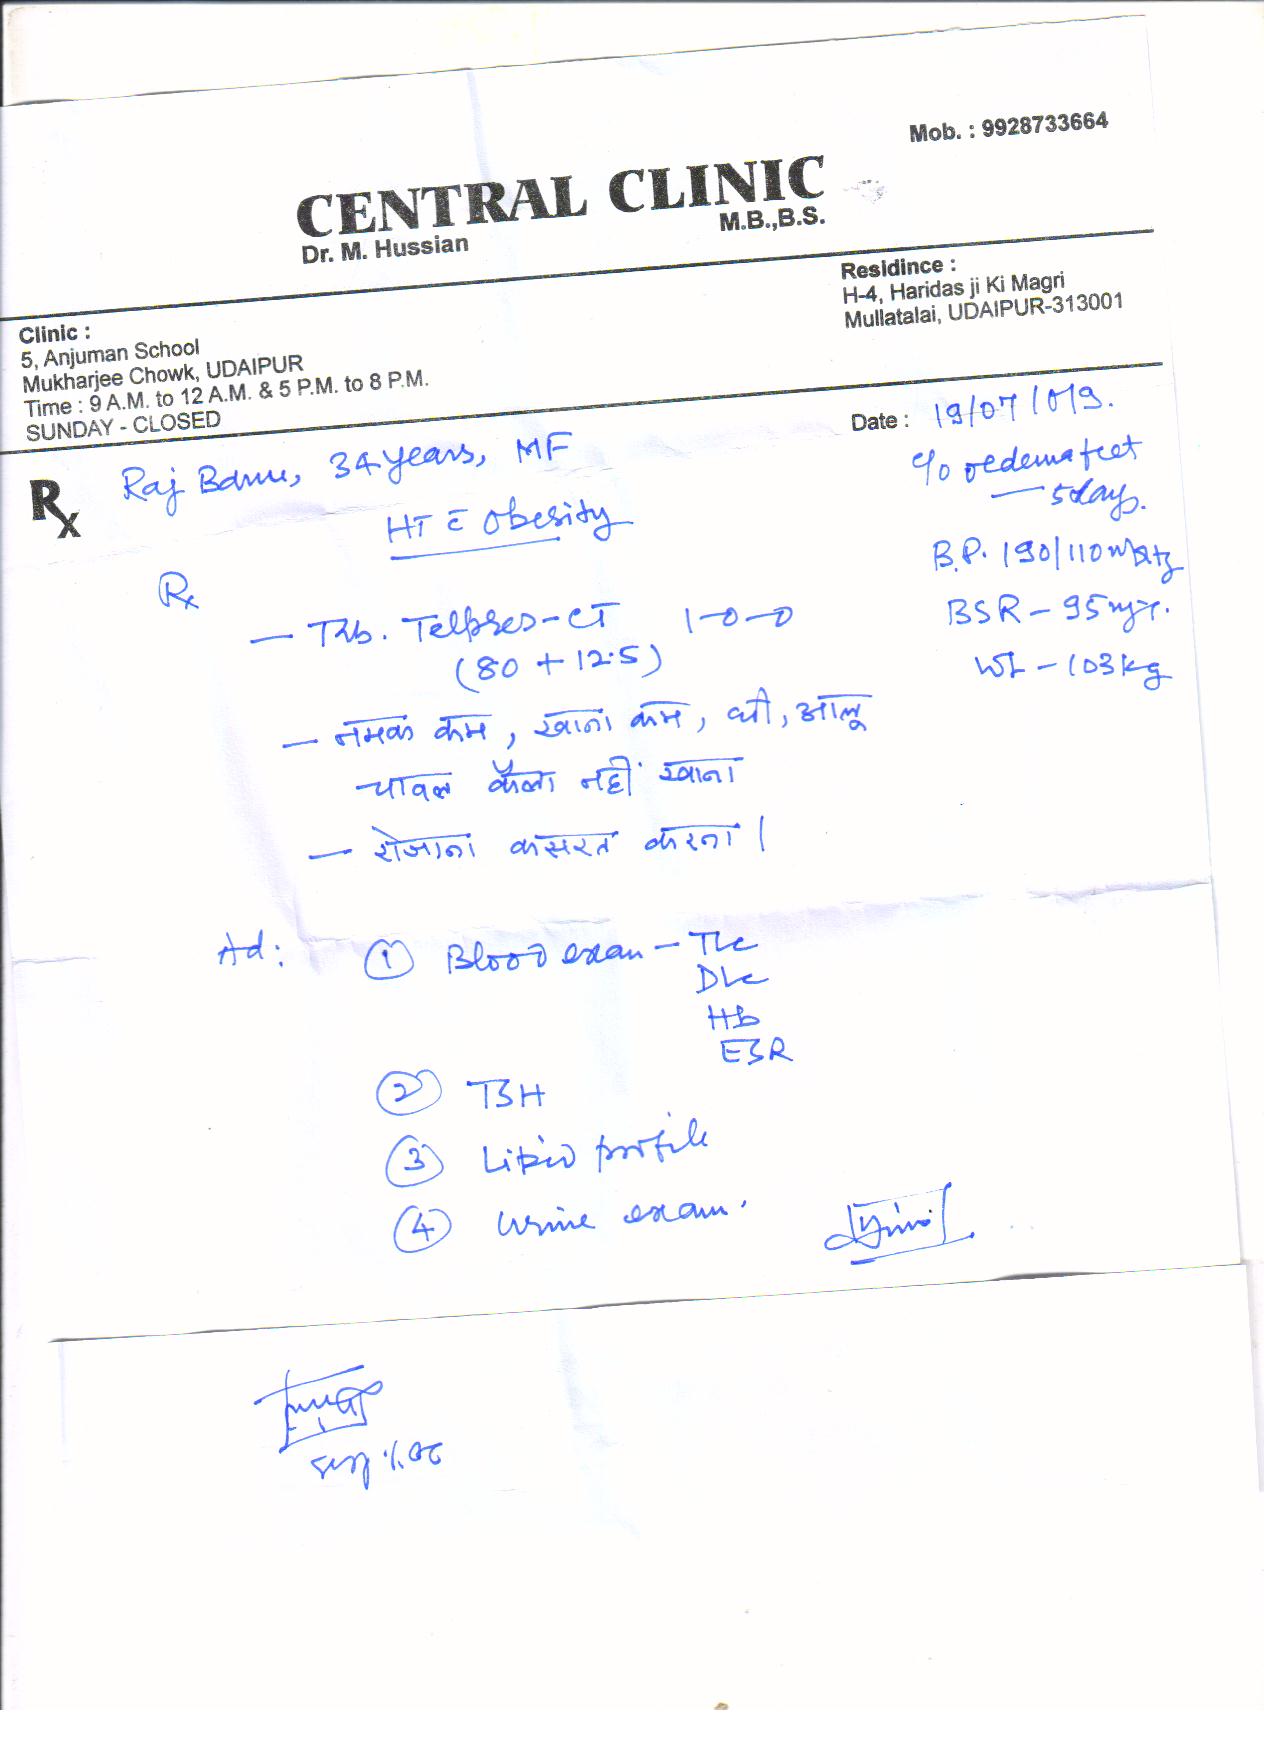 Mob. : 9928733664
CENTRAL CLINIC
Dr. M. Hussian M.B.,B.S.
Clinic :
5, Anjuman School
Mukharjee Chowk, UDAIPUR
Time : 9 A.M. to 12 A.M. & 5 P.M. to 8 P.M.
SUNDAY - CLOSED
Residince :
H-4, Haridas ji Ki Magri
Mullatalai, UDAIPUR-313001
Date : 19/07/019.
Rx Raj Banu, 34 years, MF
HT c Obesity
c/o oedema feet
— 5 days.
B.P. 190/110 mmHg
BSR - 95 mg%.
Wt - 103 kg
Rx
— Tab. Telpres-CT 1-0-0
(80 + 12.5)
— नमक कम, खाना कम, घी, आलू
चावल केला नहीं खाना
— रोजाना कसरत करना।
Ad:
① Blood exam - TLC
DLC
Hb
ESR
② TSH
③ Lipid profile
④ Urine exam.